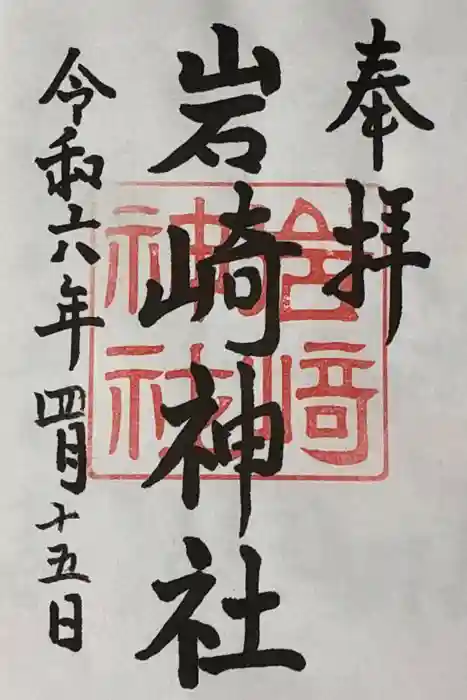 奉拝
岩崎神社
令和六年四月十五日
岩崎
神社